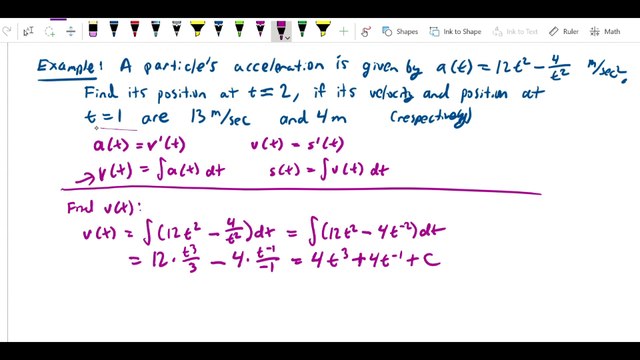 Shapes Ink to Shape Ink to Text Ink to
Example: A particle's acceleration is given by a(t) = 12t² - 4/t² m/sec².
Find its position at t = 2, if its velocity and position at
t = 1 are 13 m/sec and 4 m (respectively)
a(t) = v'(t) v(t) = s'(t)
→ v(t) = ∫a(t) dt s(t) = ∫v(t) dt
Find v(t):
v(t) = ∫(12t² - 4/t²)dt = ∫(12t² - 4t⁻²)dt
= 12 · t³/3 - 4 · t⁻¹/-1 = 4t³ + 4t⁻¹ + C